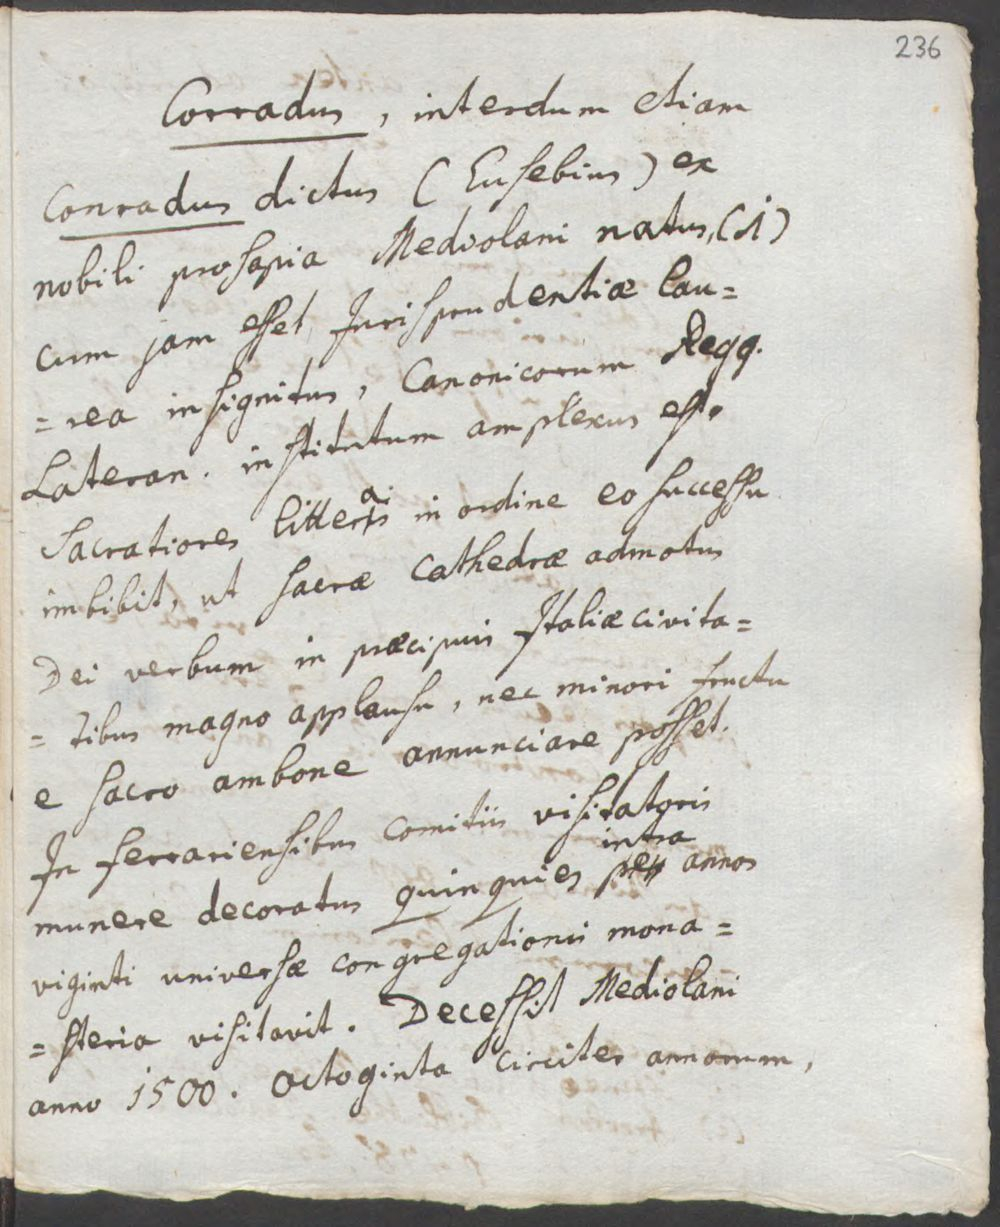 236
Corradus, interdum etiam
Conradus dictus (Eusebius) ex
nobili prosapia Mediolani natus, (1)
cum jam esset Jurisprudentiæ lau=
=rea insignitus, Canonicorum Regg.
Lateran. institutum amplexus est.
Sacratiores litteras in ordine eo successu
imbibit, ut sacræ cathedræ admotus
Dei verbum in præcipuis Italiæ civita=
=tibus magno applausu, nec minori fructu
e sacro ambone annunciare posset.
In ferrariensibus comitiis visitatoris
munere decoratus quinquies intra annos
viginti universæ congregationis mona=
=steria visitavit. Decessit Mediolani
anno 1500. octoginta circiter annorum,